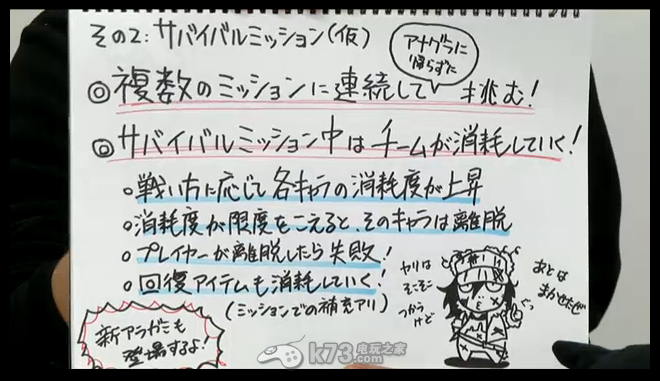 その2:サバイバルミッション(仮)
アナグラに
帰らずた
◎複数のミッションに連続して挑む!
◎サバイバルミッション中はチームが消耗していく!
○戦い方に応じて各キャラの消耗度が上昇
○消耗度が限度をこえると、そのキャラは離脱
○プレイヤーが離脱したら失敗!
○回復アイテムも消耗していく!
(ミッションでの補充アリ)
ヤリは
そこそこ
つかう
けど
あとは
まかせたぜ
新アラガミも
登場するよ!
k73 电玩之家
.com